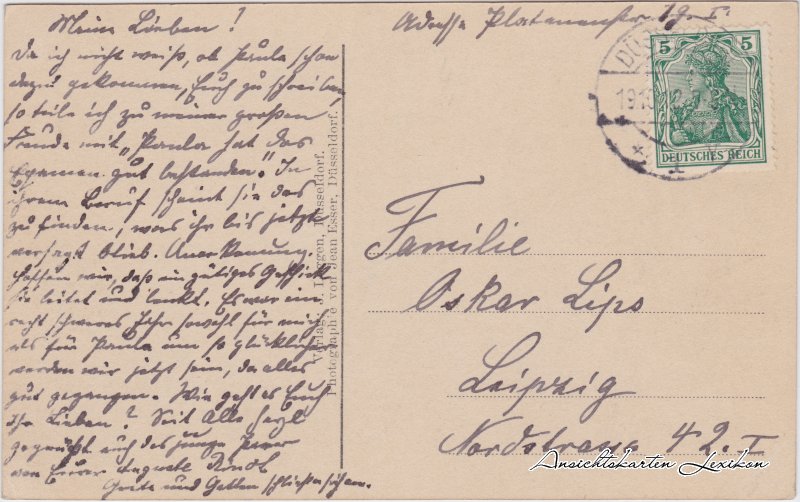 Meine Lieben!
Da ich nicht weiß, ob Paula schon
dazu gekommen, Euch zu schreiben,
so teile ich zu meiner großen
Freude mit „Paula hat das
Examen gut bestanden." In
ihrem Beruf scheint sie das
zu finden, was ihr bis jetzt
versagt blieb. Anerkennung.
Hoffen wir, daß ein gütiges Geschick
sie leitet und lenkt. Es war ein
recht schweres Jahr sowohl für mich
als für Paula um so glücklicher
werden wir jetzt sein, da alles
gut gegangen. Wie geht es Euch
Ihr Lieben? Seit Alle herzl
gegrüßt auch das junge Paar
von Eurer Auguste
Grete und Gatten schließen sich an.
Verlag: J. Düsseldorf.
Photographie von Jean Esser, Düsseldorf.
Adresse Platanenstr 19. I.
DÜS
5 5
DEUTSCHES REICH
Familie
Oskar Lips
Leipzig
Nordstrasse 42. I
Ansichtskarten Lexikon